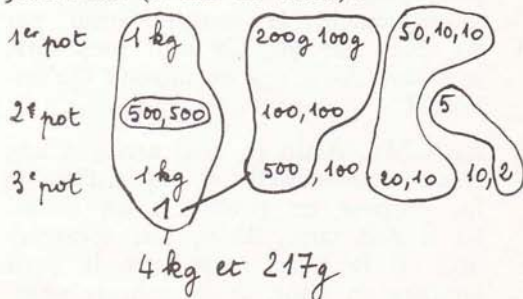 1er pot 1 kg 200g 100g 50, 10, 10
2e pot 500, 500 100, 100 5
3e pot 1 kg 500, 100 20, 10 10, 2
1
4 kg et 217g